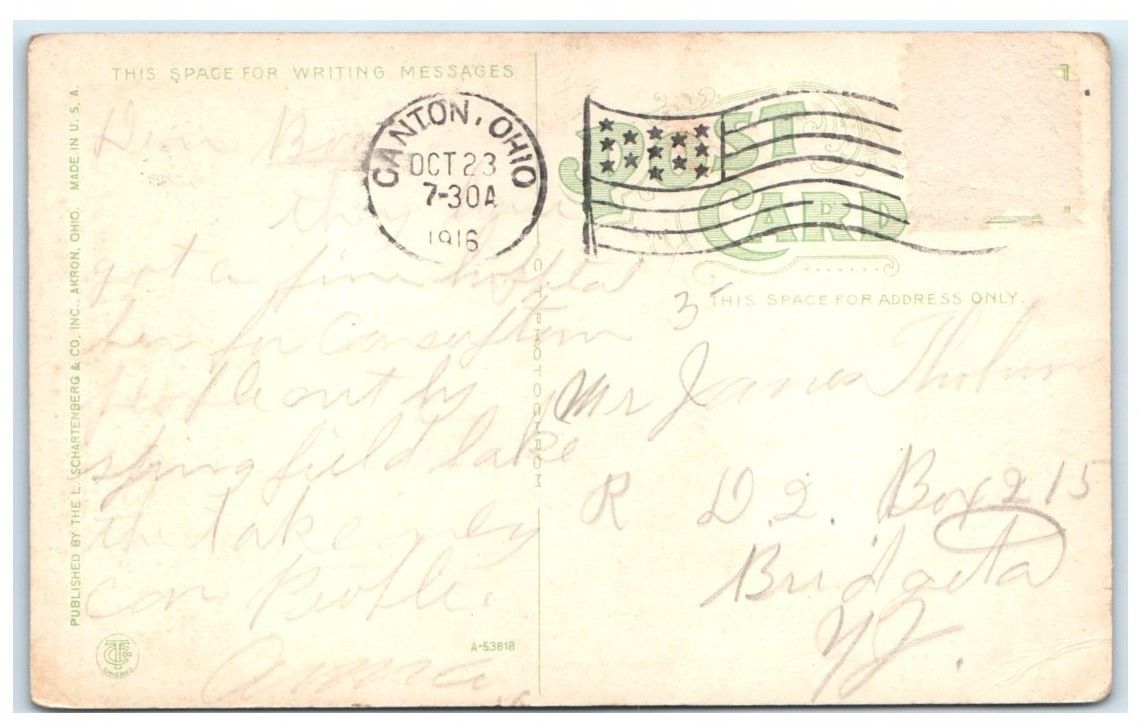 THIS SPACE FOR WRITING MESSAGES
PUBLISHED BY THE L. SCHARTENBERG & CO. INC., AKRON, OHIO. MADE IN U. S. A.
Dear
they
got a fine hospital
here for
People out by
springfield lake
the take only
con People.
Anna
C. T. PHOTOCHROM
A-53818
CHICAGO
CANTON, OHIO
OCT 23
7-30A
1916
POST
CARD
THIS SPACE FOR ADDRESS ONLY.
3
Mr James
R D. 2. Box 215
NJ.